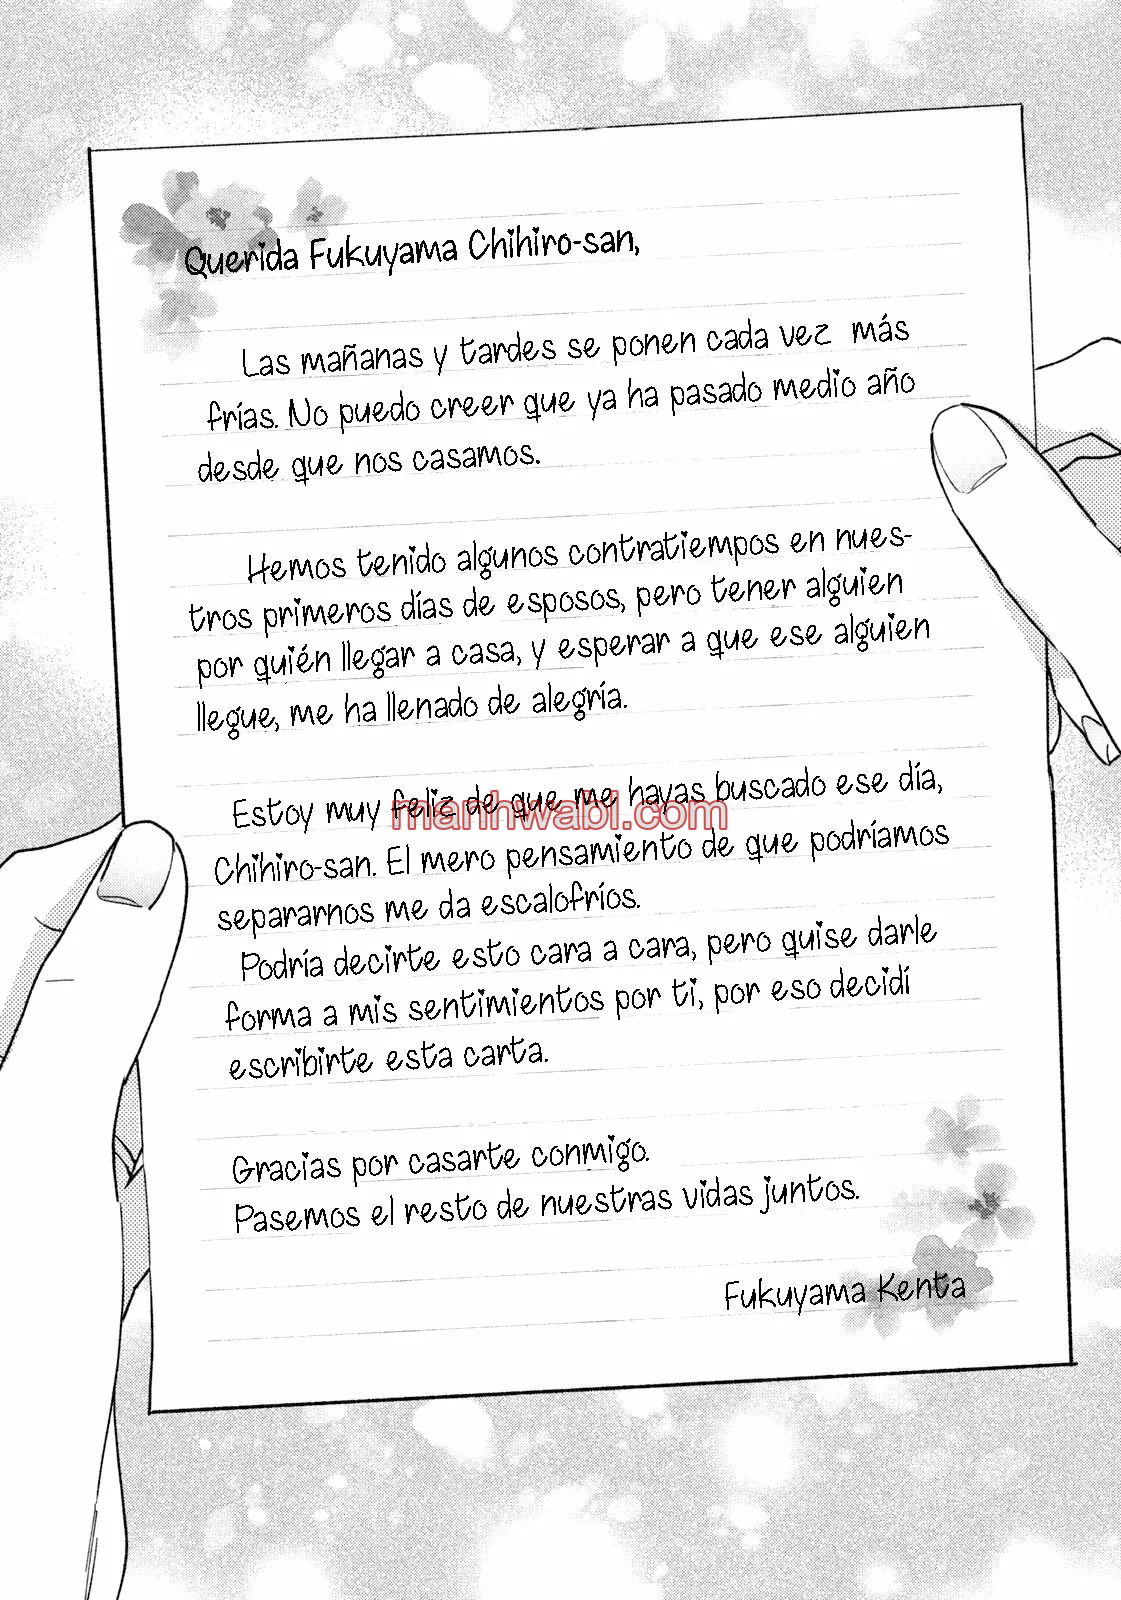 Querida Fukuyama Chihiro-san,
Las mañanas y tardes se ponen cada vez más
frías. No puedo creer que ya ha pasado medio año
desde que nos casamos.
Hemos tenido algunos contratiempos en nues-
tros primeros días de esposos, pero tener alguien
por quién llegar a casa, y esperar a que ese alguien
llegue, me ha llenado de alegría.
Estoy muy feliz de que me hayas buscado ese día,
manhwabi.com
Chihiro-san. El mero pensamiento de que podríamos
separarnos me da escalofríos.
Podría decirte esto cara a cara, pero quise darle
forma a mis sentimientos por ti, por eso decidí
escribirte esta carta.
Gracias por casarte conmigo.
Pasemos el resto de nuestras vidas juntos.
Fukuyama Kenta